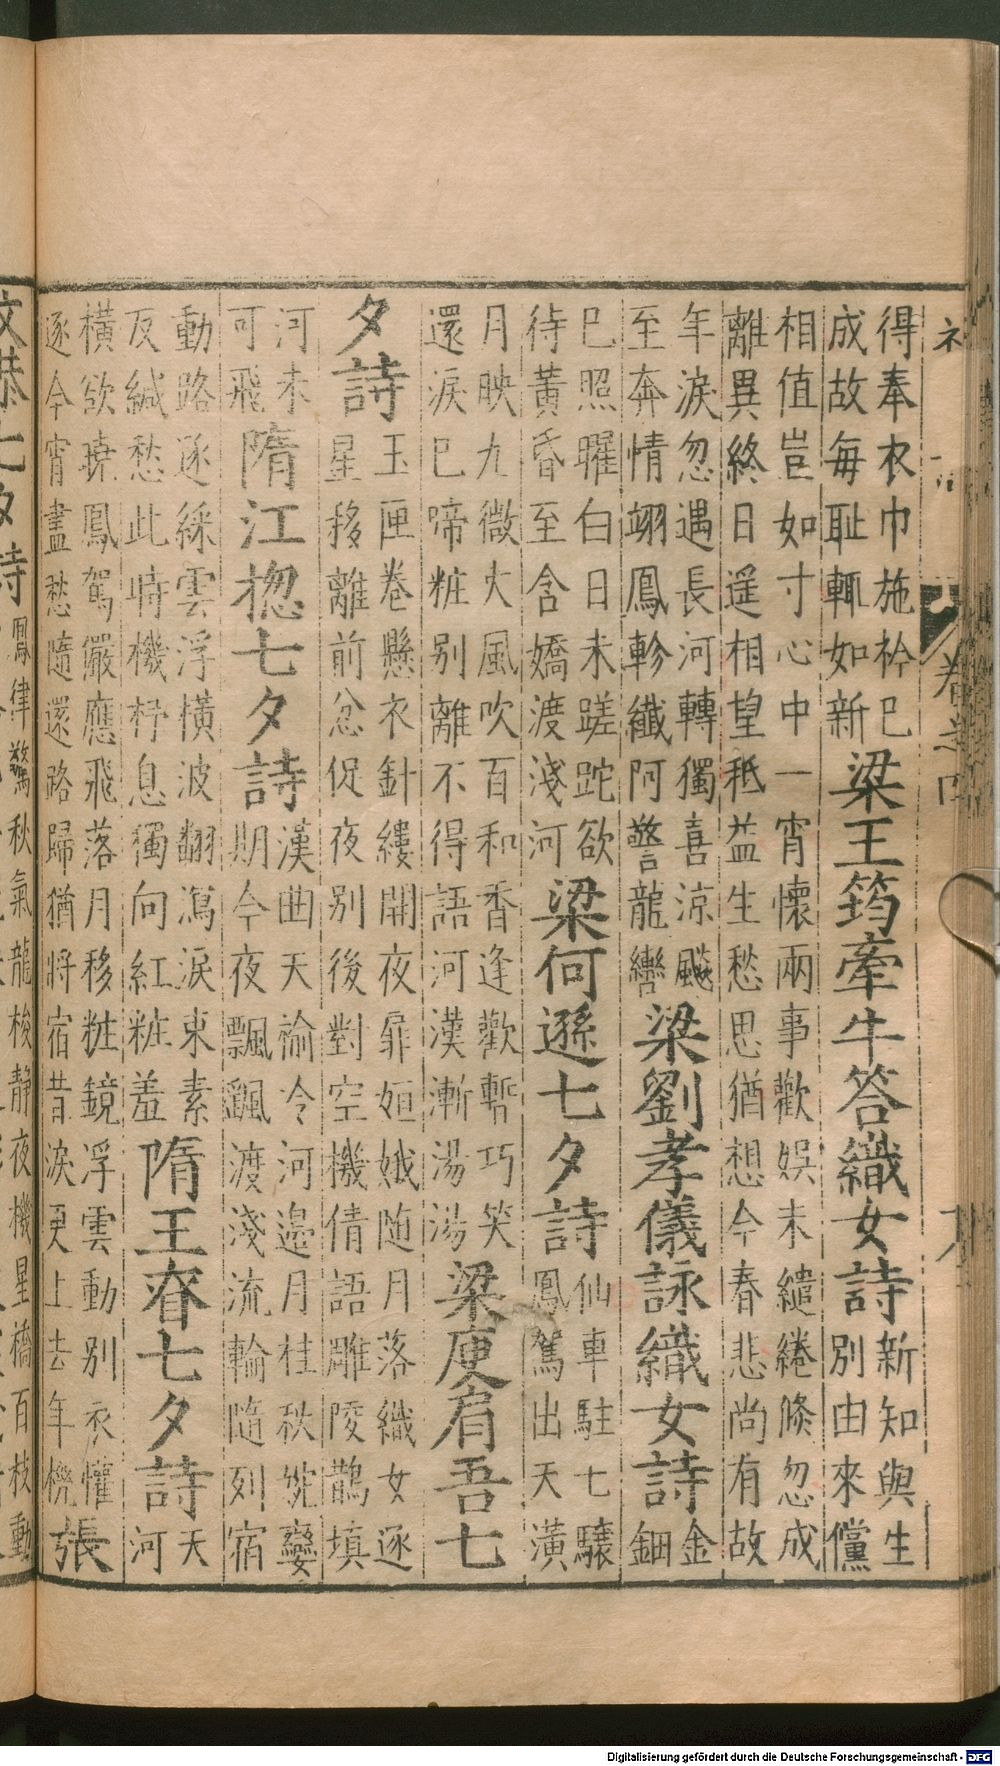 卷之四
得奉衣巾施衿已
成故每恥輒如新
梁王筠牽牛答織女詩
新知與生
別由來儻
相值豈如寸心中一宵懷兩事歡娛未繾綣倐忽成
離異終日遥相望秪益生愁思猶想今春悲尚有故
年淚忽遇長河轉獨喜涼飈
至奔情翊鳳軫纖阿警龍轡
梁劉孝儀詠織女詩
金
鈿
巳照曜白日未蹉跎欲
待黃昏至含嬌渡淺河
梁何遜七夕詩
仙車駐七驤
鳳駕出天潢
月映九微火風吹百和香逢歡暫巧笑
還淚巳啼粧別離不得語河漢漸湯湯
梁庾肩吾七
夕詩
玉匣卷懸衣針縷開夜扉姮娥随月落織女逐
星移離前忿促夜別後對空機倩語雕陵鵲填
河未
可飛
隋江揔七夕詩
漢曲天榆冷河邊月桂秋婉孌
期今夜飄颻渡淺流輪隨列宿
動路逐綵雲浮橫波翻瀉淚束素
反緘愁此時機杼息獨向紅粧羞
隋王眘七夕詩
天
河
橫欲曉鳳駕儼應飛落月移粧鏡浮雲動別衣懽
逐今宵盡愁隨還路歸猶將宿昔淚更上去年機
張
文恭七夕詩
鳳律驚秋氣龍梭静夜機星橋百枝動
Digitalisierung gefördert durch die Deutsche Forschungsgemeinschaft - DFG